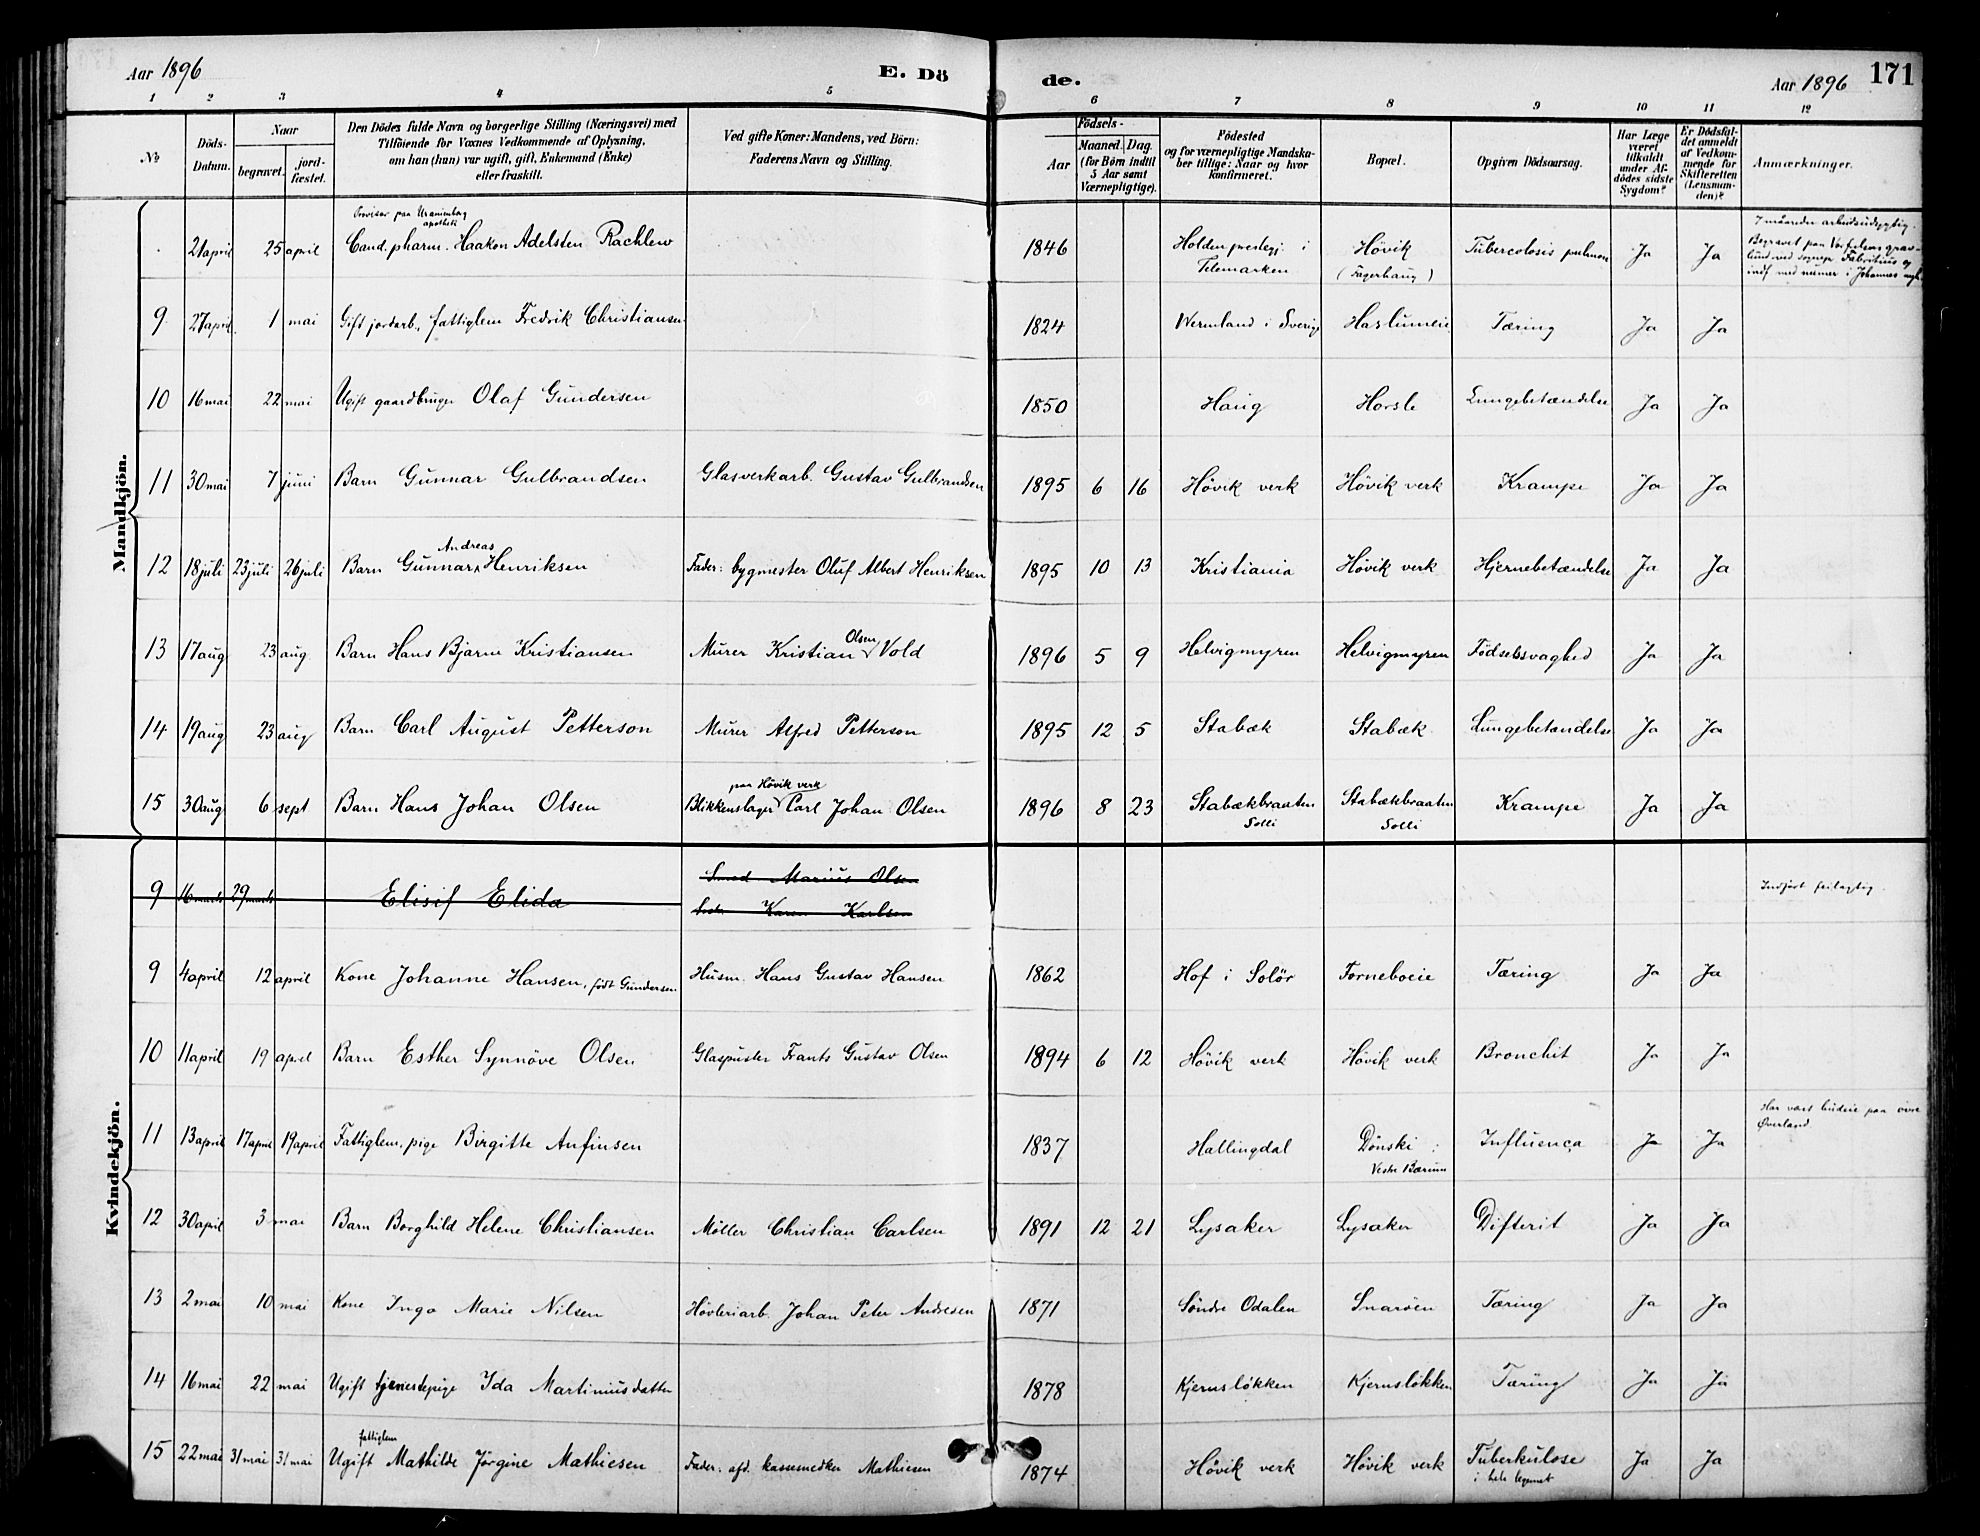 Aar 1896 E. Dö de. Aar 1896 171
1 2 3 4 5 6 7 8 9 10 11 12
No. Döds-Datum. Naar begravet. jord-fæstet. Den Dödes fulde Navn og borgerlige Stilling (Næringsvei) med Tilföiende for Voxnes Vedkommende af Oplysning, om han (hun) var ugift, gift, Enkemand (Enke) eller fraskilt. Ved gifte Koner: Mandens, ved Börn: Faderens Navn og Stilling. Födsels- Aar Maaned. Dag. (for Börn indtil 5 Aar samt Værnepligtige). Födested og for værnepligtige Mandskaber tillige: Naar og hvor konfirmeret. Bopæl. Opgiven Dödsaarsag. Har Læge været tilkaldt under Afdödes sidste Sygdom? Er Dödsfaldet anmeldt af Vedkommende for Skifteretten (Lensmanden)? Anmærkninger.
Mandkjön.
Provisor paa Uranienborg apothek
21 april 25 april Cand. pharm. Haakon Adelsten Rachlew 1846 Holden prestegj. i Telemarken Hövik (Fagerhaug) Tubercolosis pulmon Ja Ja 7 maaneder arbeidsudygtig. Begravet paa Vor frelsers gravlund ved sognepr Fabritius og indf med numer i Johannes
9 27 april. 1 mai Gift jordarb., fattiglem Fredrik Christiansen 1824 Wermland i Sverige Haslumeie Tæring Ja Ja
10 16 mai 22 mai Ugift gaardbruger Olaf Gundersen 1850 Haug Horsle Lungebetændelse Ja Ja
11 30 mai 7 juni Barn Gunnar Gulbrandsen Glasverkarb. Gustav Gulbrandsen 1895 6 16 Hövik verk Hövik verk Krampe Ja Ja
12 18 juli 23 juli 26 juli Barn Gunnar Andreas Henriksen Fader: bygmester Oluf Albert Henriksen 1895 10 13 Kristiania Hövik verk Hjernebetændelse Ja Ja
13 17 aug 23 aug. Barn Hans Bjarne Kristiansen Murer Kristian Olsen Vold 1896 5 9 Helvigmyren Helvigmyren Födselssvaghed Ja Ja
14 19 aug 23 aug Barn Carl August Petterson Murer Alfred Petterson 1895 12 5 Stabæk Stabæk Lungebetændelse Ja Ja
15 30 aug 6 sept Barn Hans Johan Olsen Blikkenslager paa Hövik verk Carl Johan Olsen 1896 8 23 Stabækbraaten Solli Stabækbraaten Solli Krampe Ja Ja
Kvindekjön.
9 16 marts 29 marts Elisif Elida Smed Marius Olsen Karen Karlsen Indført feilagtig.
9 4 april 12 april Kone Johanne Hansen, född Gundersen Husm. Hans Gustav Hansen 1862 Hof i Solör Forneboeie Tæring Ja Ja
10 11 april 19 april Barn Esther Synnöve Olsen Glaspuster Frants Gustav Olsen 1894 6 12 Hövik verk Hövik verk Bronchit Ja Ja
11 13 april 17 april 19 april Fattiglem, pige Birgitte Anfinsen 1837 Hallingdal Dönski i Vestre Bærum Influenca Ja Ja Har vært budeie paa övre Øverland
12 30 april 3 mai Barn Borghild Helene Christiansen Möller Christian Carlsen 1891 12 21 Lysaker Lysaker Difterit Ja Ja
13 2 mai 10 mai Kone Inga Marie Nilsen Hövleriarb. Johan Peter Andresen 1871 Söndre Odalen Snaröen Tæring Ja Ja
14 16 mai 22 mai Ugift tjenestepige Ida Martiniusdatter 1878 Kjernsløkken Kjernsløkken Tæring Ja Ja
15 22 mai 31 mai 31 mai Ugift fattiglem Mathilde Jörgine Mathiesen Fader: afd. kassesmedker Mathiesen 1874 Hövik verk Hövik verk Tuberkulose i hele legemet Ja Ja